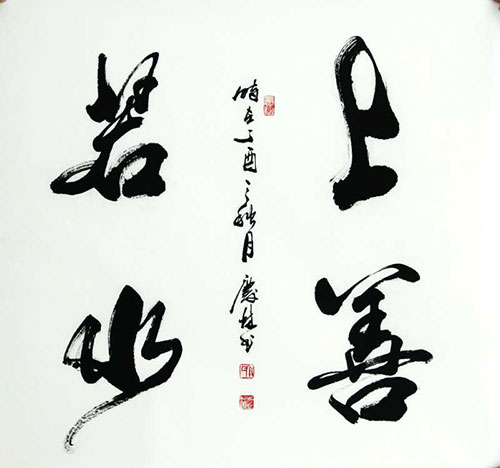 上善
若水
時在丁酉之秋月